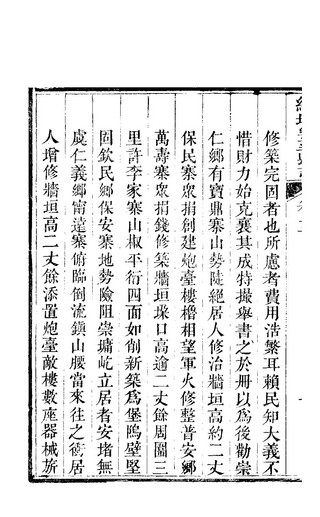 修築完固者也所慮者費用浩繁耳賴民知大義不
惜財力始克襄其成特撮舉書之於冊以為後勸崇
仁鄉有寶鼎寨山勢陡絕居人修治牆垣高約二丈
保民寨眾捐創建炮臺樓櫓相望軍火修整普安鄉
萬壽寨眾捐錢修築牆垣垜口高逾二丈餘周圍三
里許李家寨山椒平衍四面如削新築為堡隝壁堅
固欽民鄉保安寨地勢險阻崇墉屹立居者安堵無
虞仁義鄉甯遠寨俯臨倒流鎮山腰當來往之衝居
人增修牆垣高二丈餘添置炮臺敵樓數座器械旂